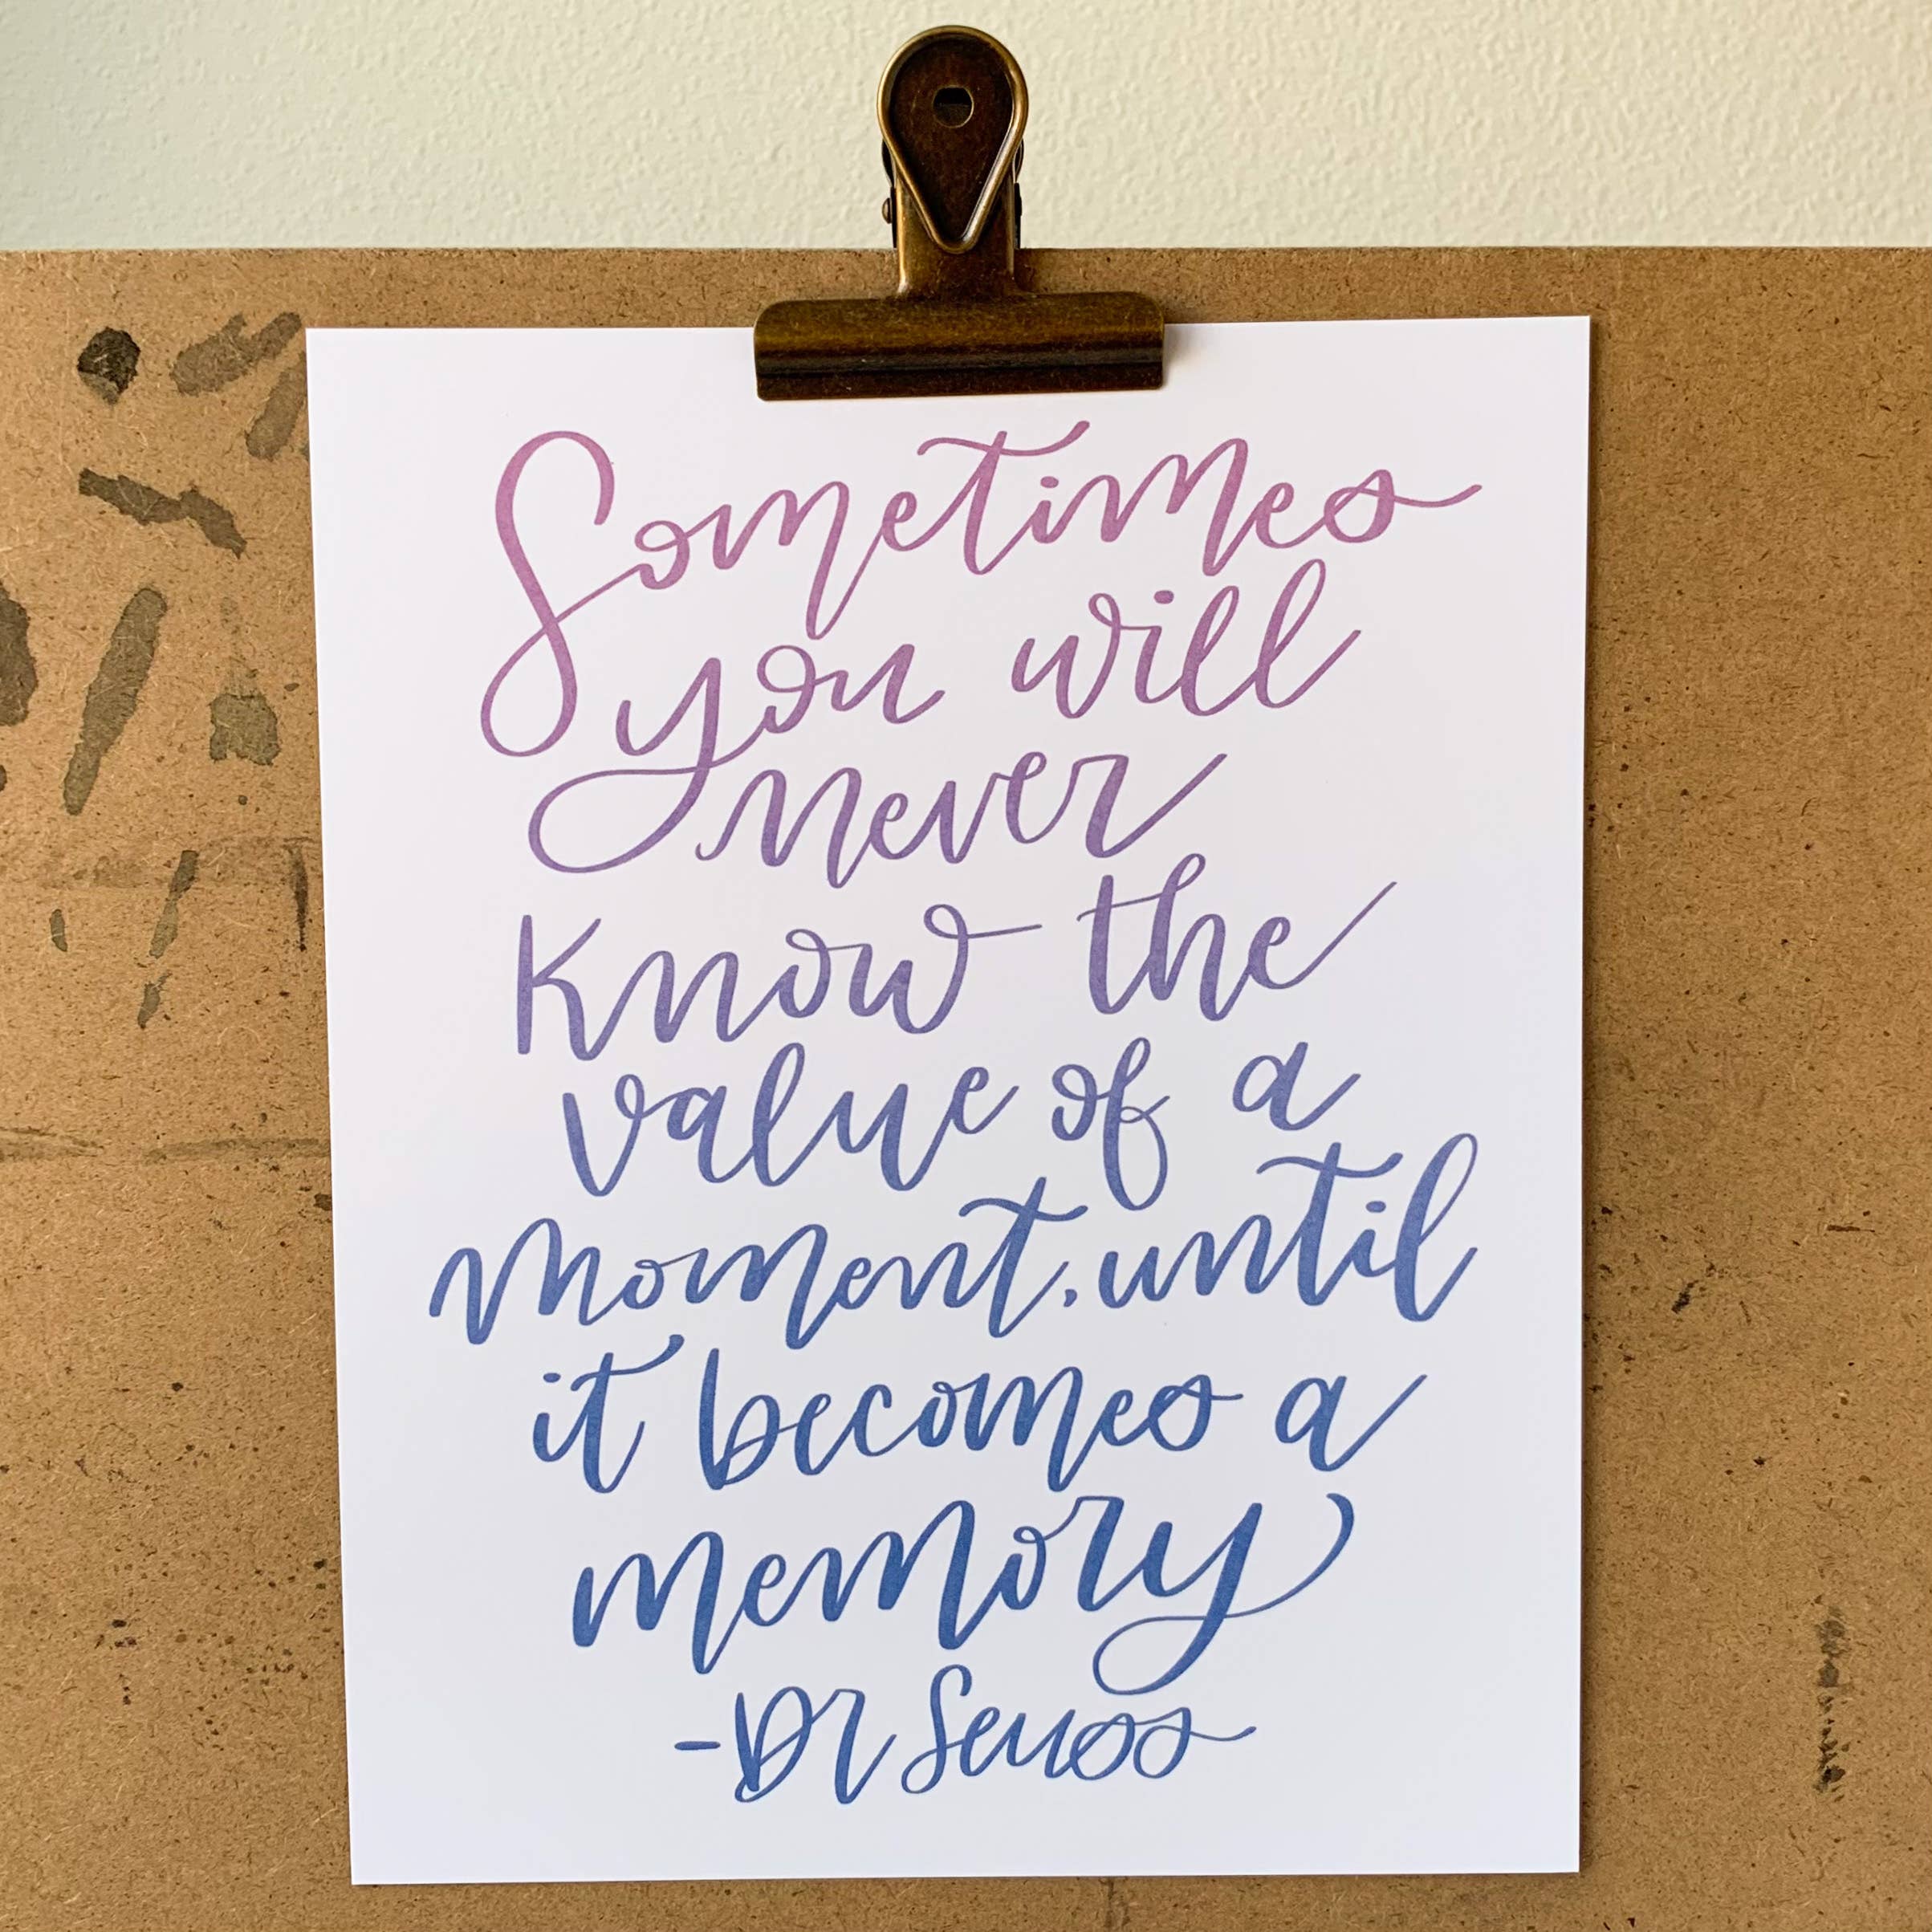 Sometimes
you will
never
Know the
value of a
moment, until
it becomes a
memory
-Dr Seuss